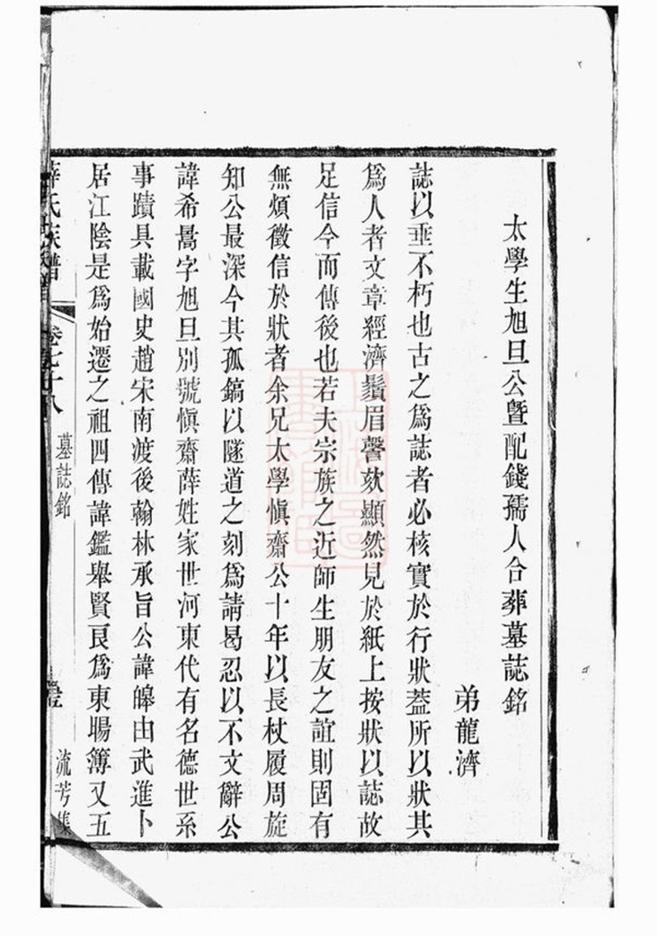 太學生旭旦公暨配錢孺人合葬墓誌銘
弟龍濟
誌以垂不朽也古之為誌者必核實於行狀葢所以狀其
為人者文章經濟鬚眉謦欬顯然見於紙上按狀以誌故
足信今而傳後也若夫宗族之近師生朋友之誼則固有
無煩徵信於狀者余兄太學愼齋公十年以長杖履周旋
知公最深今其孤鎬以隧道之刻為請曷忍以不文辭公
諱希暠字旭旦別號愼齋薛姓家世河東代有名德世系
事蹟具載國史趙宋南渡後翰林承旨公諱皞由武進卜
居江陰是為始遷之祖四傳諱鑑舉賢良為東陽簿又五
薛氏族譜
卷七十八
墓誌銘
流芳集